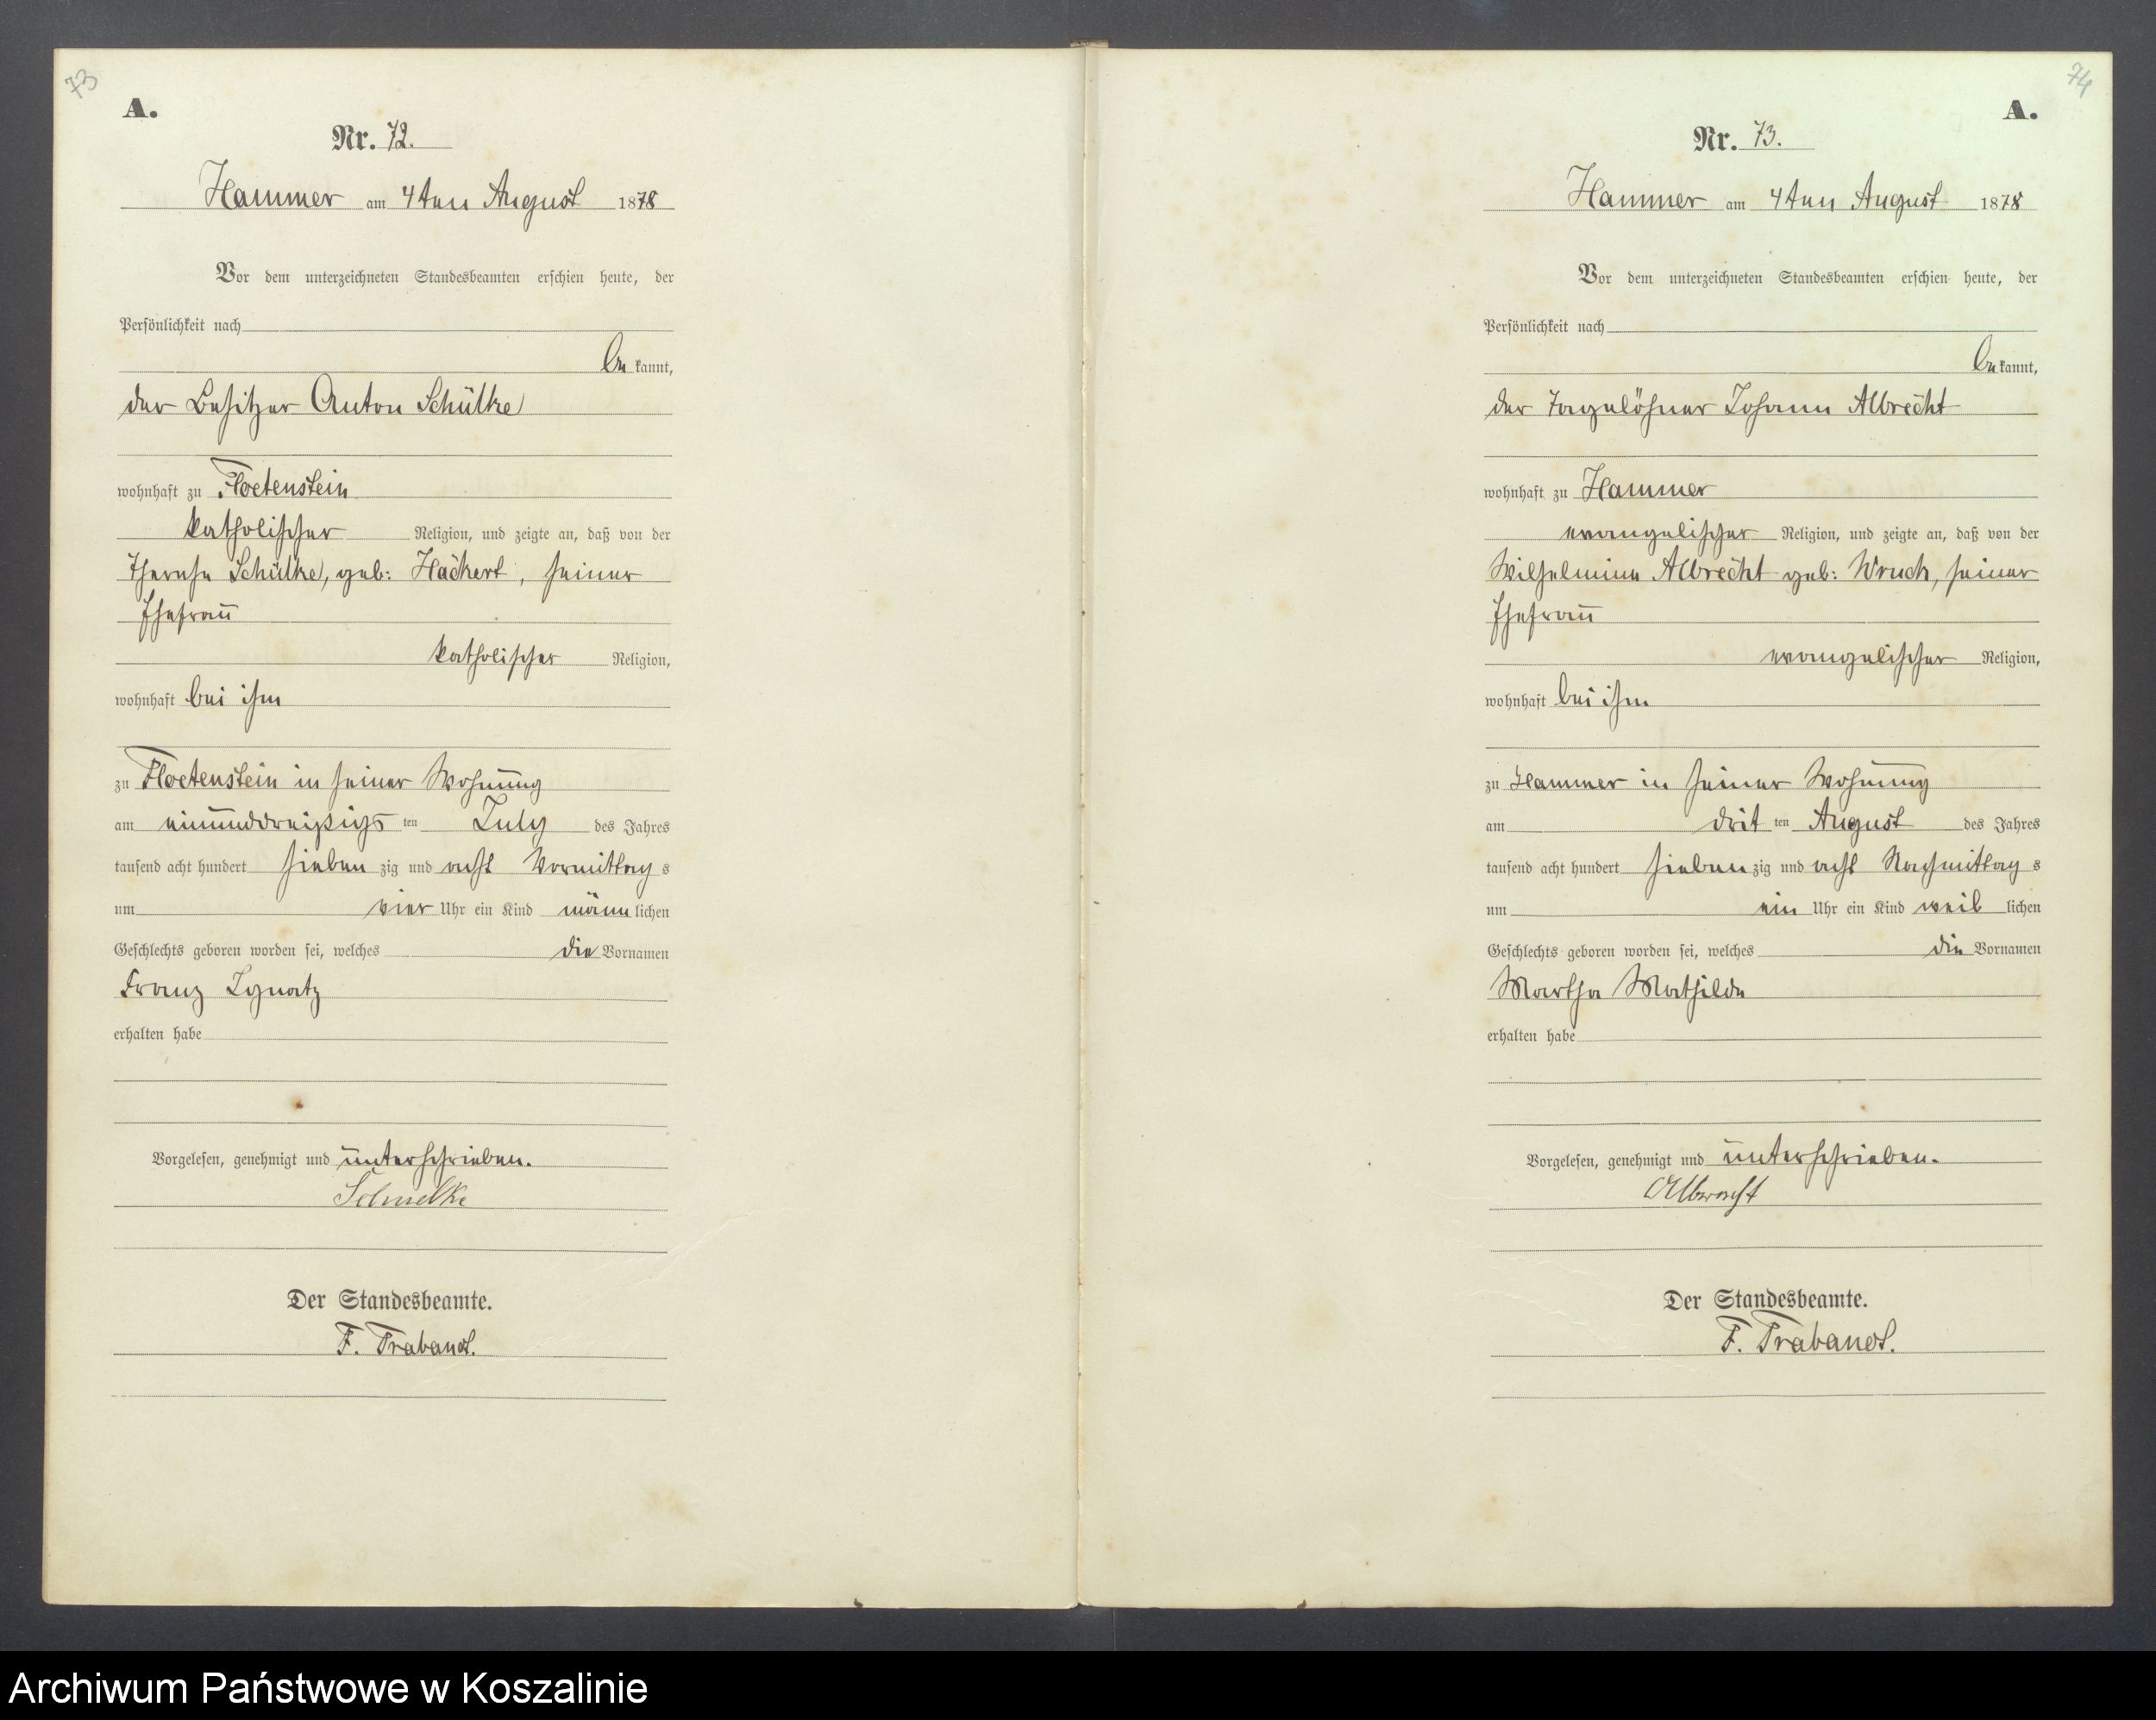 73
A.
Nr. 72.
Hammer am 4ten August 1878
Vor dem unterzeichneten Standesbeamten erschien heute, der
Persönlichkeit nach
be kannt,
der Besitzer Anton Schülke
wohnhaft zu Floetenstein
katholischer Religion, und zeigte an, daß von der
Therese Schülke, geb: Häckert, seiner
Ehefrau
katholischer Religion,
wohnhaft bei ihm
zu Floetenstein in seiner Wohnung
am einunddreißigs ten July des Jahres
tausend acht hundert sieben zig und acht Vormittag s
um vier Uhr ein Kind männ lichen
Geschlechts geboren worden sei, welches die Vornamen
Franz Ignatz
erhalten habe
Vorgelesen, genehmigt und unterschrieben.
Schuelke
Der Standesbeamte.
F. Trabandt.
74
A.
Nr. 73.
Hammer am 4ten August 1878
Vor dem unterzeichneten Standesbeamten erschien heute, der
Persönlichkeit nach
be kannt,
der Tagelöhner Johann Albrecht
wohnhaft zu Hammer
evangelischer Religion, und zeigte an, daß von der
Wilhelmine Albrecht geb: Wruck, seiner
Ehefrau
evangelischer Religion,
wohnhaft bei ihm
zu Hammer in seiner Wohnung
am drit ten August des Jahres
tausend acht hundert sieben zig und acht Nachmittag s
um ein Uhr ein Kind weib lichen
Geschlechts geboren worden sei, welches die Vornamen
Martha Mathilde
erhalten habe
Vorgelesen, genehmigt und unterschrieben.
Albrecht
Der Standesbeamte.
F. Trabandt.
Archiwum Państwowe w Koszalinie